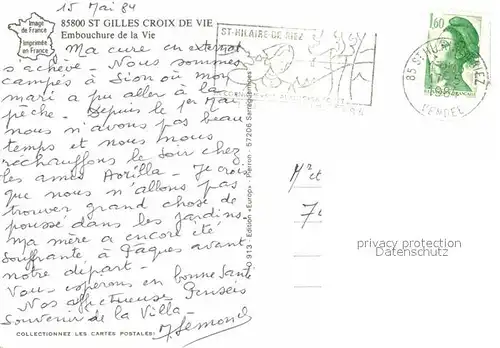 15 Mai 84
Image
de France
Imprimée
en France
85800 ST GILLES CROIX DE VIE
Embouchure de la Vie
Ma cure en externat
s'achève - Nous sommes
campés à Sion où mon
mari a pu aller à la
pêche - Depuis le 1er Mai
nous n'avons pas beau
temps et nous nous
réchauffons le soir chez
les amis - Je crois
que nous n'allons pas
trouver grand chose de
poussé dans les jardins.
Ma mère a encore été
souffrante à Pâques avant
notre départ -
Vous espérons en bonne Santé
Nos affectueuses Pensées
Souvenir de la Villa -
COLLECTIONNEZ LES CARTES POSTALES
ST-HILAIRE DE RIEZ
85 ST HILAIRE DE RIEZ
VENDEE
1,60
Edition «Europ» Pierron - 57206 Sarreguemines
privacy protection
Datenschutz